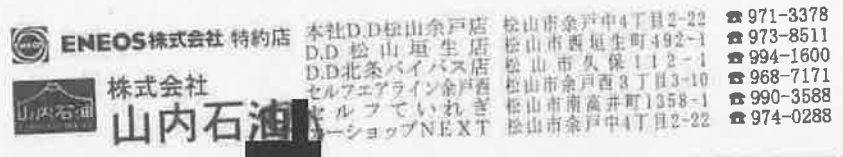 ENEOS株式会社 特約店
株式会社
山内石油
山内石油
本社D.D松山余戸店 松山市余戸中4丁目2-22 ☎971-3378
D.D松山垣生店 松山市西垣生町492-1 ☎973-8511
D.D北条バイパス店 松山市久保112-1 ☎994-1600
セルフエアライン余戸西 松山市余戸西3丁目3-10 ☎968-7171
セルフていれぎ 松山市南高井町1358-1 ☎990-3588
ーショップNEXT 松山市余戸中4丁目2-22 ☎974-0288